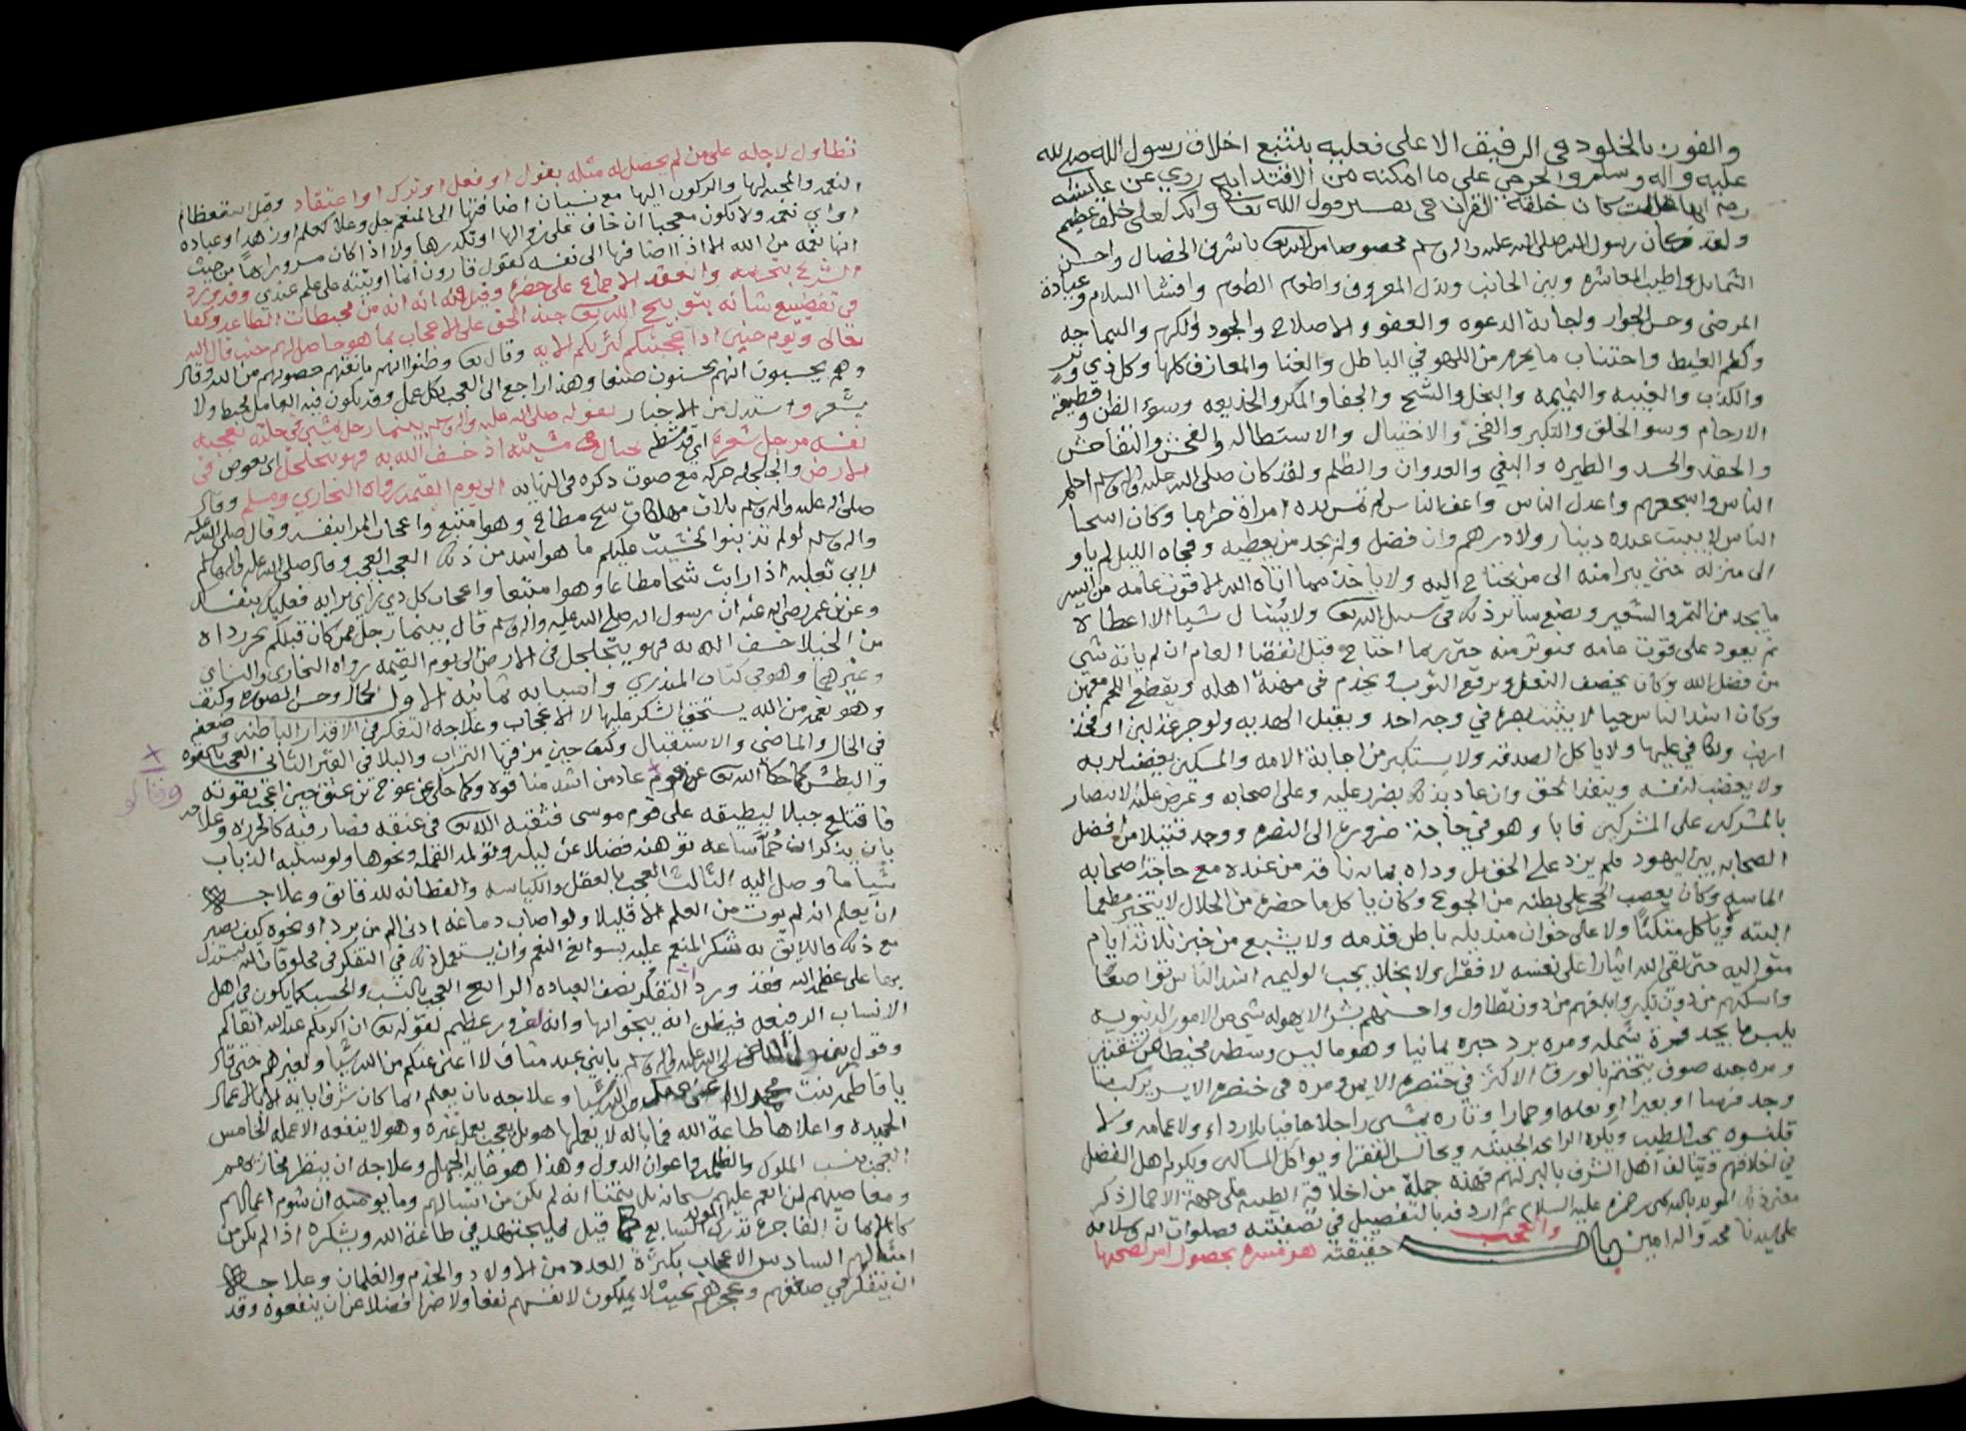 والفوز بالخلود في الرفيق الاعلى فعليه بتتبع اخلاق رسول الله صلى الله
عليه واله وسلم والحرص على ما امكنه من الاقتدا به روي عن عايشة
رضي الله كان خلقه القران في تفسير قول الله تعالى وانك لعلى خلق عظيم
ولقد كان رسول الله صلى الله عليه واله وسلم مخصوصا من الله تعالى باشرف الخصال واحسن
الشمايل واطيب المعاشره ولين الجانب وبذل المعروف واطعام الطعام وافشا السلام وعيادة
المرضى وحسن الجوار واجابة الدعوه والعفو والاصلاح والجود والكرم والسماحه
وكظم الغيظ واجتناب ما يحرم من اللهو في الباطل والغنا والمعازف كلها وكل ذي وتر
والكذب والغيبه والنميمه والبخل والشح والجفا والمكر والخديعه وسوء الظن وقطيعة
الارحام وسو الخلق والتكبر والفخر والاختيال والاستطاله والفحش والتفاحش
والحقد والحسد والطيره والبغي والعدوان والظلم ولقد كان صلى الله عليه واله وسلم احلم
الناس واشجعهم واعدل الناس واعف الناس لم تمس يده امراة وكان اسخا
الناس لا يبيت عنده دينار ولا درهم وان فضل ولم يجد من يعطيه وفجاه الليل لم ياو
الى منزله حتى يبرا منه الى من يحتاج اليه ولا ياخذ مما اتاه الله الا قوت عامه من ايسر
ما يجد من التمر والشعير ويضع ساير ذلك في سبيل الله تعالى ولا يسال شيا الا اعطاه
ثم يعود على قوت عامه فيوثر منه حتى ربما احتاج قبل انقضا العام ان لم ياته شي
من فضل الله وكان يخصف النعل ويرقع الثوب ويخدم في مهنة اهله ويقطع اللحم معهن
وكان اشد الناس حيا لا يثبت بصره في وجه احد ويقبل الهديه ولو جرعة لبن او فخذ
ارنب ويكافي عليها ولا ياكل الصدقه ولا يستكبر من اجابة الامه والمسكين يغضب لربه
ولا يغضب لنفسه وينفذ الحق وان عاد بذلك بضرر عليه وعلى اصحابه وعرض عليه الانتصار
بالمشركين على المشركين فابا وهو في حاجة ضروريه الى النصره ووجد قتيلا من افضل
الصحابه بين اليهود فلم يزد على الحق بل وداه بمايه ناقه من عنده مع حاجة اصحابه
الماسه وكان يعصب الحجر على بطنه من الجوع وكان ياكل ما حضره من الحلال لا يتخير مطعما
البته ولا ياكل متكئا ولا على خوان منديله باطن قدمه ولا يشبع من خبز ثلاثة ايام
متواليه حتى لقى الله ايثارا على نفسه لا فقرا ولا بخلا يجيب الوليمه اشد الناس تواضعا
واسكنهم من دون تكبر وابلغهم من دون تطاول واحسنهم بشرا لا يهوله شي من الامور الدنيويه
يلبس ما يجد فمرة شمله ومره برد حبره يمانيا
ومره جبه صوف يتختم بالورق الاكثر في خنصره الايمن ومره في خنصره الايسر يركب ما
وجد فرسا او بعيرا او بغله او حمارا وتاره يمشي راجلا حافيا بلا رداء ولا عمامه ولا
قلنسوه يحب الطيب ويكره الرايحه الخبيثه ويجالس الفقرا ويواكل المساكين ويكرم اهل الفضل
في اخلاقهم ويتالف اهل الشرف بالبر لهم فهذه جملة من اخلاقه الطيبه على جهة الاجمال ذكر
معنى ذلك المويد بالله يحيى بن حمزه عليه السلام ثم اردفه بالتفصيل في تصفيته فصلوات الله وسلامه
على سيدنا محمد واله امين باب والعجب حقيقته هو مسره بحصول امر يصحبها
تطاول لاجله على من لم يحصل له مثله بقول او فعل او ترك او اعتقاد وقيل استعظام
النعمه والمحبه لها والركون اليها مع نسيان اضافتها الى المنعم جل وعلا كعلم او زهد او عباده
او اي نعمه ولا يكون معجبا ان خاف على زوالها او تكدرها ولا اذا كان مسرورا بها من حيث
انها نعمه من الله الا اذا اضافها الى نفسه كقول قارون انما اوتيته على علم عندي وقد ورد
الشرع بتحريمه وانعقد الاجماع على حضره وقيل انه من محبطات الطاعه وكفا
في تفضيع شانه توبيخ الله تعالى جند الحق على الاعجاب بما هو حاصل لهم حيث قال الله
تعالى ويوم حنين اذ اعجبتكم كثرتكم الايه وقال تعالى وظنوا انهم مانعتهم حصونهم من الله وقال
وهم يحسبون انهم يحسنون صنعا وهذا راجع الى العجب بكل عمل وقد يكون فيه العامل محبط ولا
يشعر واستدل من الاخبار بقوله صلى الله عليه واله وسلم بينما رجل يمشي في حلة تعجبه
نفسه مرجل شعره اي ممشط يختال في مشيته اذ خسف الله به فهو يتجلجل اي يغوص في
الارض والجلجله حركه مع صوت ذكره في النهايه الى يوم القيمه رواه البخاري ومسلم وقال
صلى الله عليه واله وسلم ثلاث مهلكات شح مطاع وهوا متبع واعجاب المرا بنفسه وقال صلى الله عليه
واله وسلم لو لم تذنبوا لخشيت عليكم ما هو اشد من ذلك العجب العجب وقال صلى الله عليه واله وسلم
لابي ثعلبه اذا رايت شحا مطاعا وهوا متبعا واعجاب كل ذي راي برايه فعليك بنفسك
وعن بن عمر رضي الله عنه ان رسول الله صلى الله عليه واله وسلم قال بينما رجل ممن كان قبلكم يجر رداه
من الخيلا خسف الله به فهو يتجلجل في الارض الى يوم القيمه رواه البخاري والنساي
وغيرهما وهو في كتاب المنذري واسبابه ثمانيه الاول الجمال وحسن الصوره وكيف
وهو نعمة من الله يستحق الشكر عليها لا الاعجاب وعلاجه التفكر في الاقذار الباطنه وضعفه
في الحال والماضي والاستقبال وكيف حين مزقها التراب والبلا في القبر الثاني العجب بالقوه
والبطش كما حكاه الله تعالى عن قوم عاد من اشد منا قوه وكما حكي عن عوج بن عنق حين اعجب بقوته
فاقتلع جبلا ليطبقه على قوم موسى فثقبه الله تعالى في عنقه فصار فيه كالخرزه وعلاجه
بان يذكر ان حما ساعه توهنه فضلا عن ليله وتولد القمله ونحوها ولو سلبه الذباب
شيا ما وصل اليه الثالث العجب بالعقل والكياسه والفطانه للدقايق وعلاجه
ان يعلم انه لم يوت من العلم الا قليلا ولو اصاب دماغه ادنى الم من برد او نحوه كيف يصير
مع ذلك فاللايق به شكر المنعم عليه بسوابغ النعم وان يستعمل ذلك في التفكر في مخلوقات الله ليستدل
بها على عظمة الله فقد ورد التفكر نصف العباده الرابع العجب بالنسب والحسب كما يكون في اهل
الانساب الرفيعه فيظن انه ينجو بها وانه لغرور عظيم لقوله تعالى ان اكرمكم عند الله اتقاكم
وقول صلى الله عليه واله وسلم يا بني عبد مناف لا اغني عنكم من الله شيا ولغيرهم حتى قال
يا فاطمه بنت محمد لا اغني عنك من الله شيا وعلاجه بان يعلم انما كان شرف ابايه الا بالاعمال
الحميده واعلاها طاعة الله فما باله لا يعملها هو بل يعجب بعمل غيره وهو لا ينفعه الا عمله الخامس
العجب بنسب الملوك والظلمه واعوان الدول وهذا هو غاية الجهل وعلاجه ان ينظر مخازيهم
ومعاصيهم لمن انعم عليهم سبحانه بل يتمنا انه لم يكن من انسالهم وما يومنه ان شوم اعمالهم
كالايمان الفاجرة تدرك السابع المولود قبل فليجتهد في طاعة الله ويشكره اذ لم يكن من
امثالهم السادس الاعجاب بكثرة العدد من الاولاد والخدم والغلمان وعلاجه
ان يتفكر في ضعفهم وعجزهم بحيث لا يملكون لانفسهم نفعا ولا ضرا فضلا عن ان ينفعوه وقد